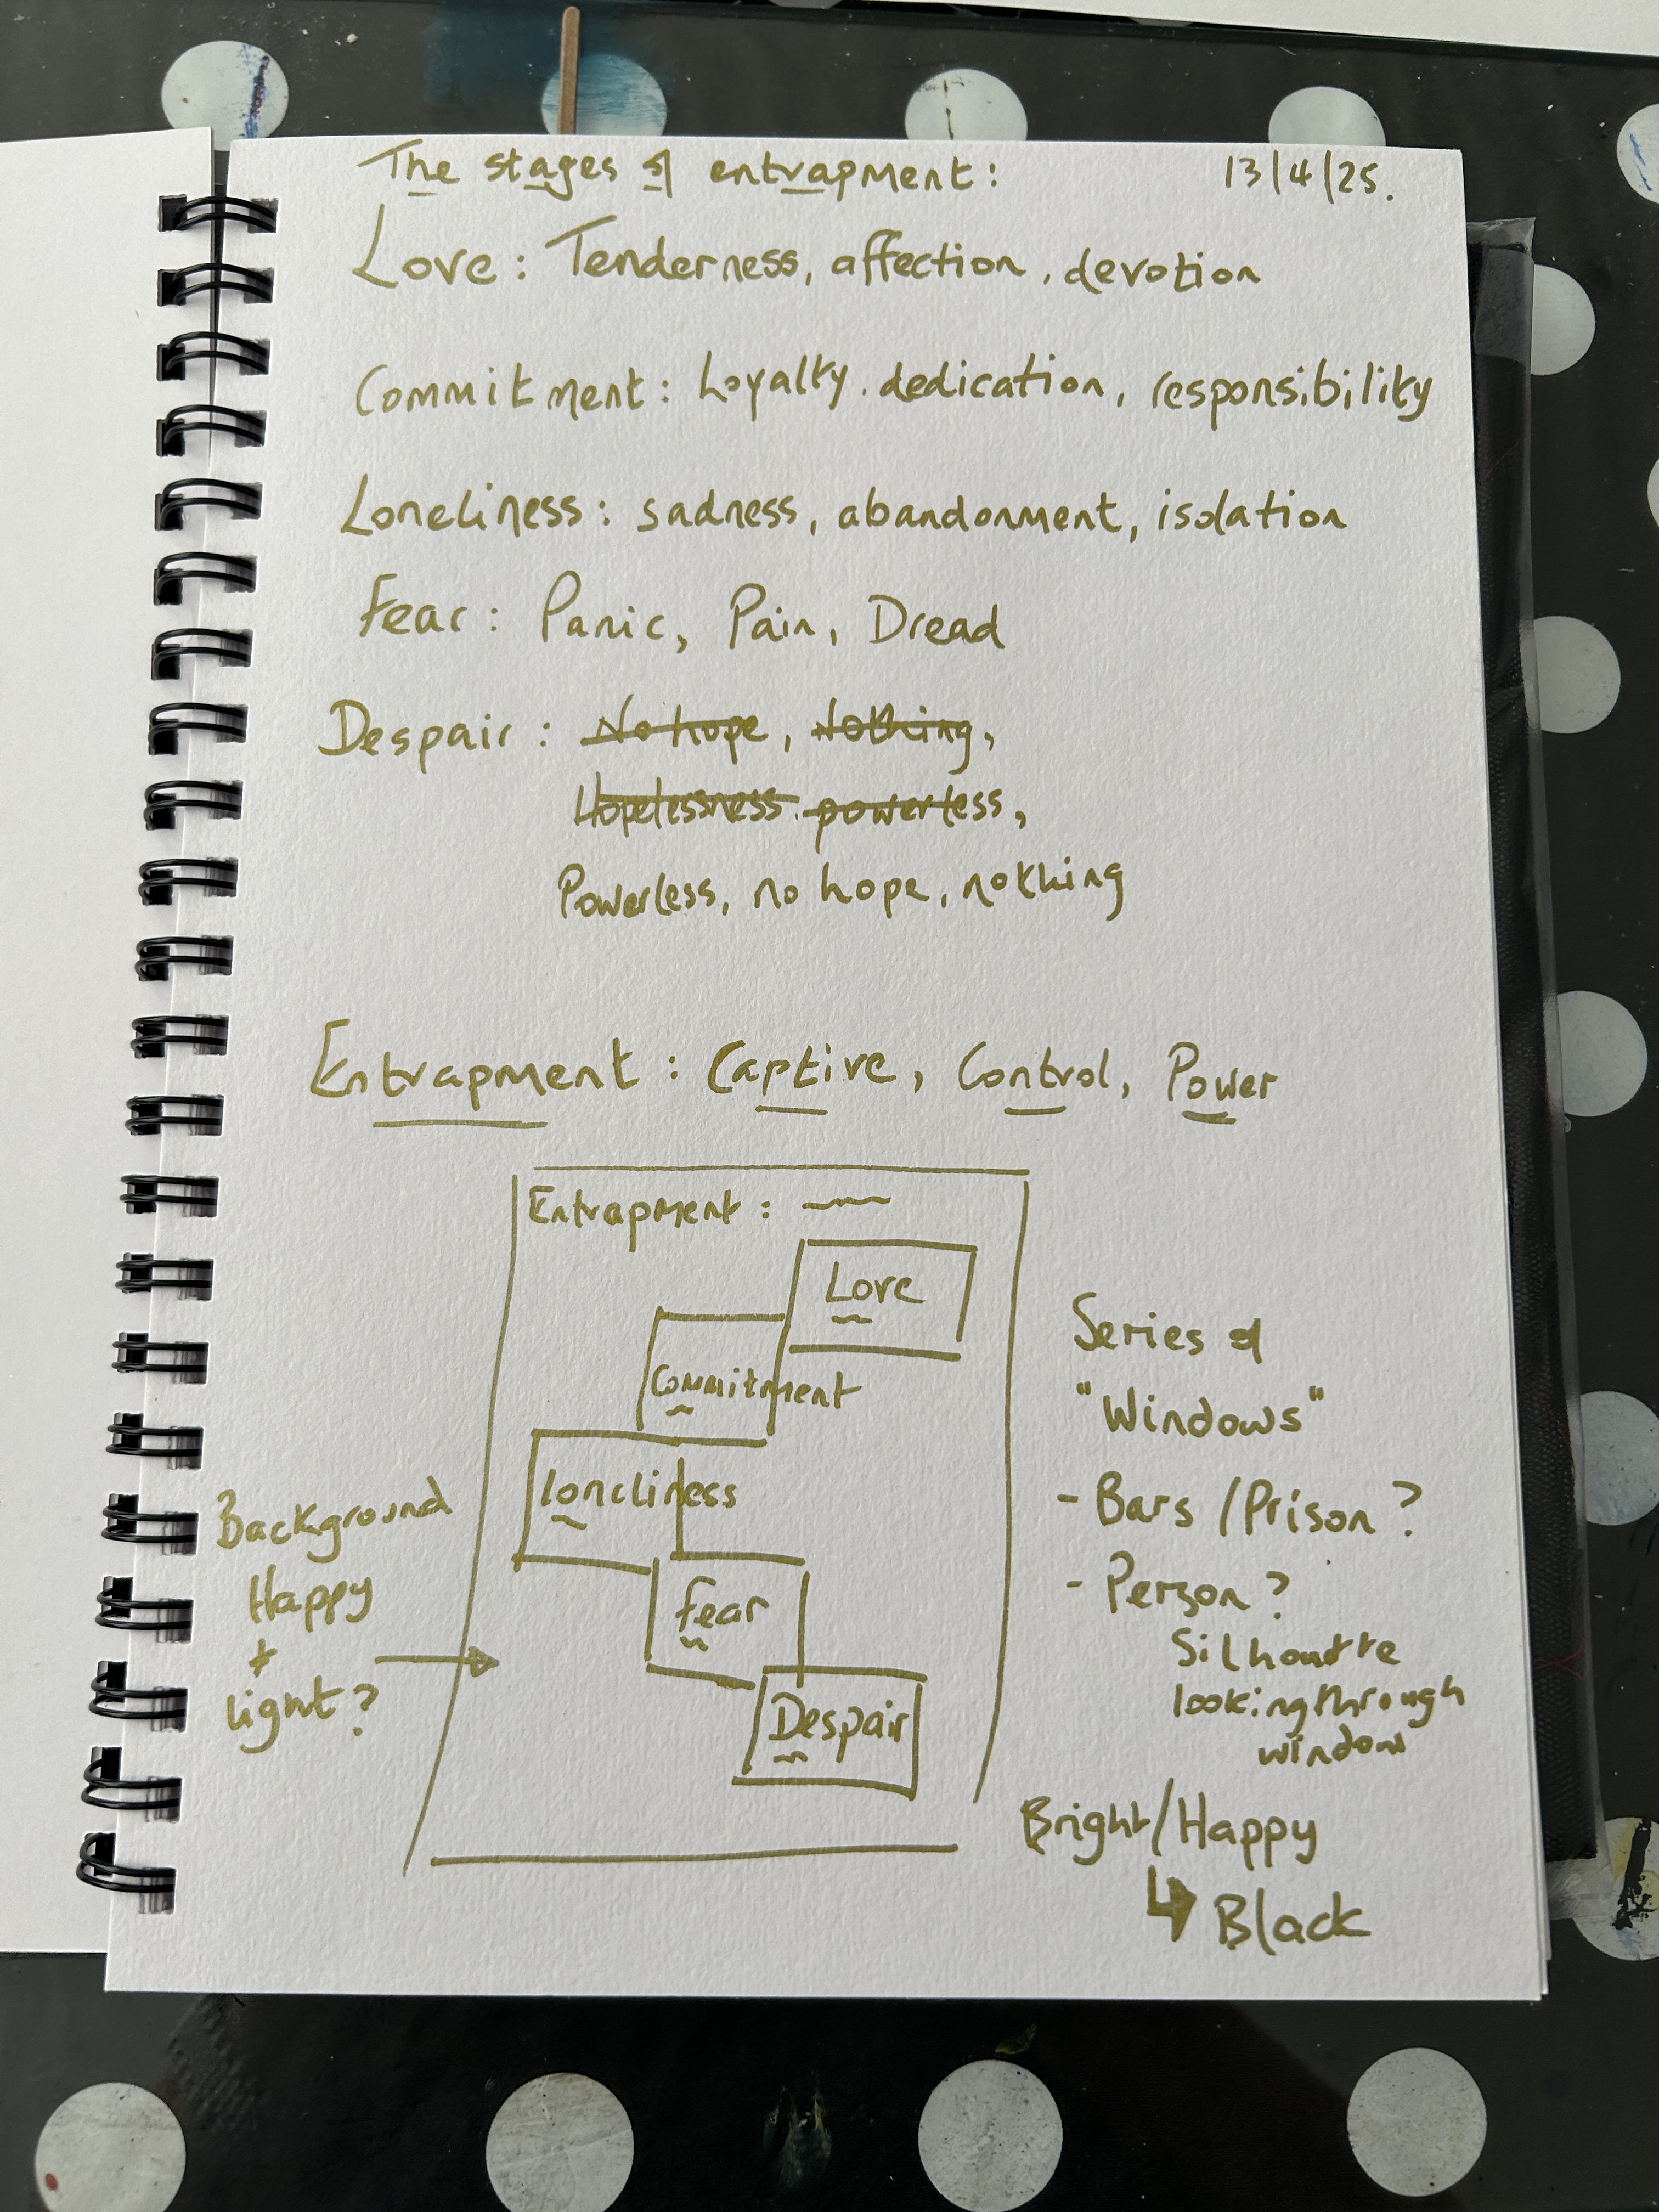 The stages of entrapment: 13/4/25.
Love: Tenderness, affection, devotion
Commitment: Loyalty, dedication, responsibility
Loneliness: sadness, abandonment, isolation
Fear: Panic, Pain, Dread
Despair: No hope, Nothing,
Hopelessness, powerless,
Powerless, no hope, nothing
Entrapment: Captive, Control, Power
Entrapment:
Love
Commitment
loneliness
fear
Despair
Background
Happy
+
light?
Series of
"Windows"
- Bars / Prison?
- Person?
Silhoutte
looking through
window
Bright/Happy
↳ Black